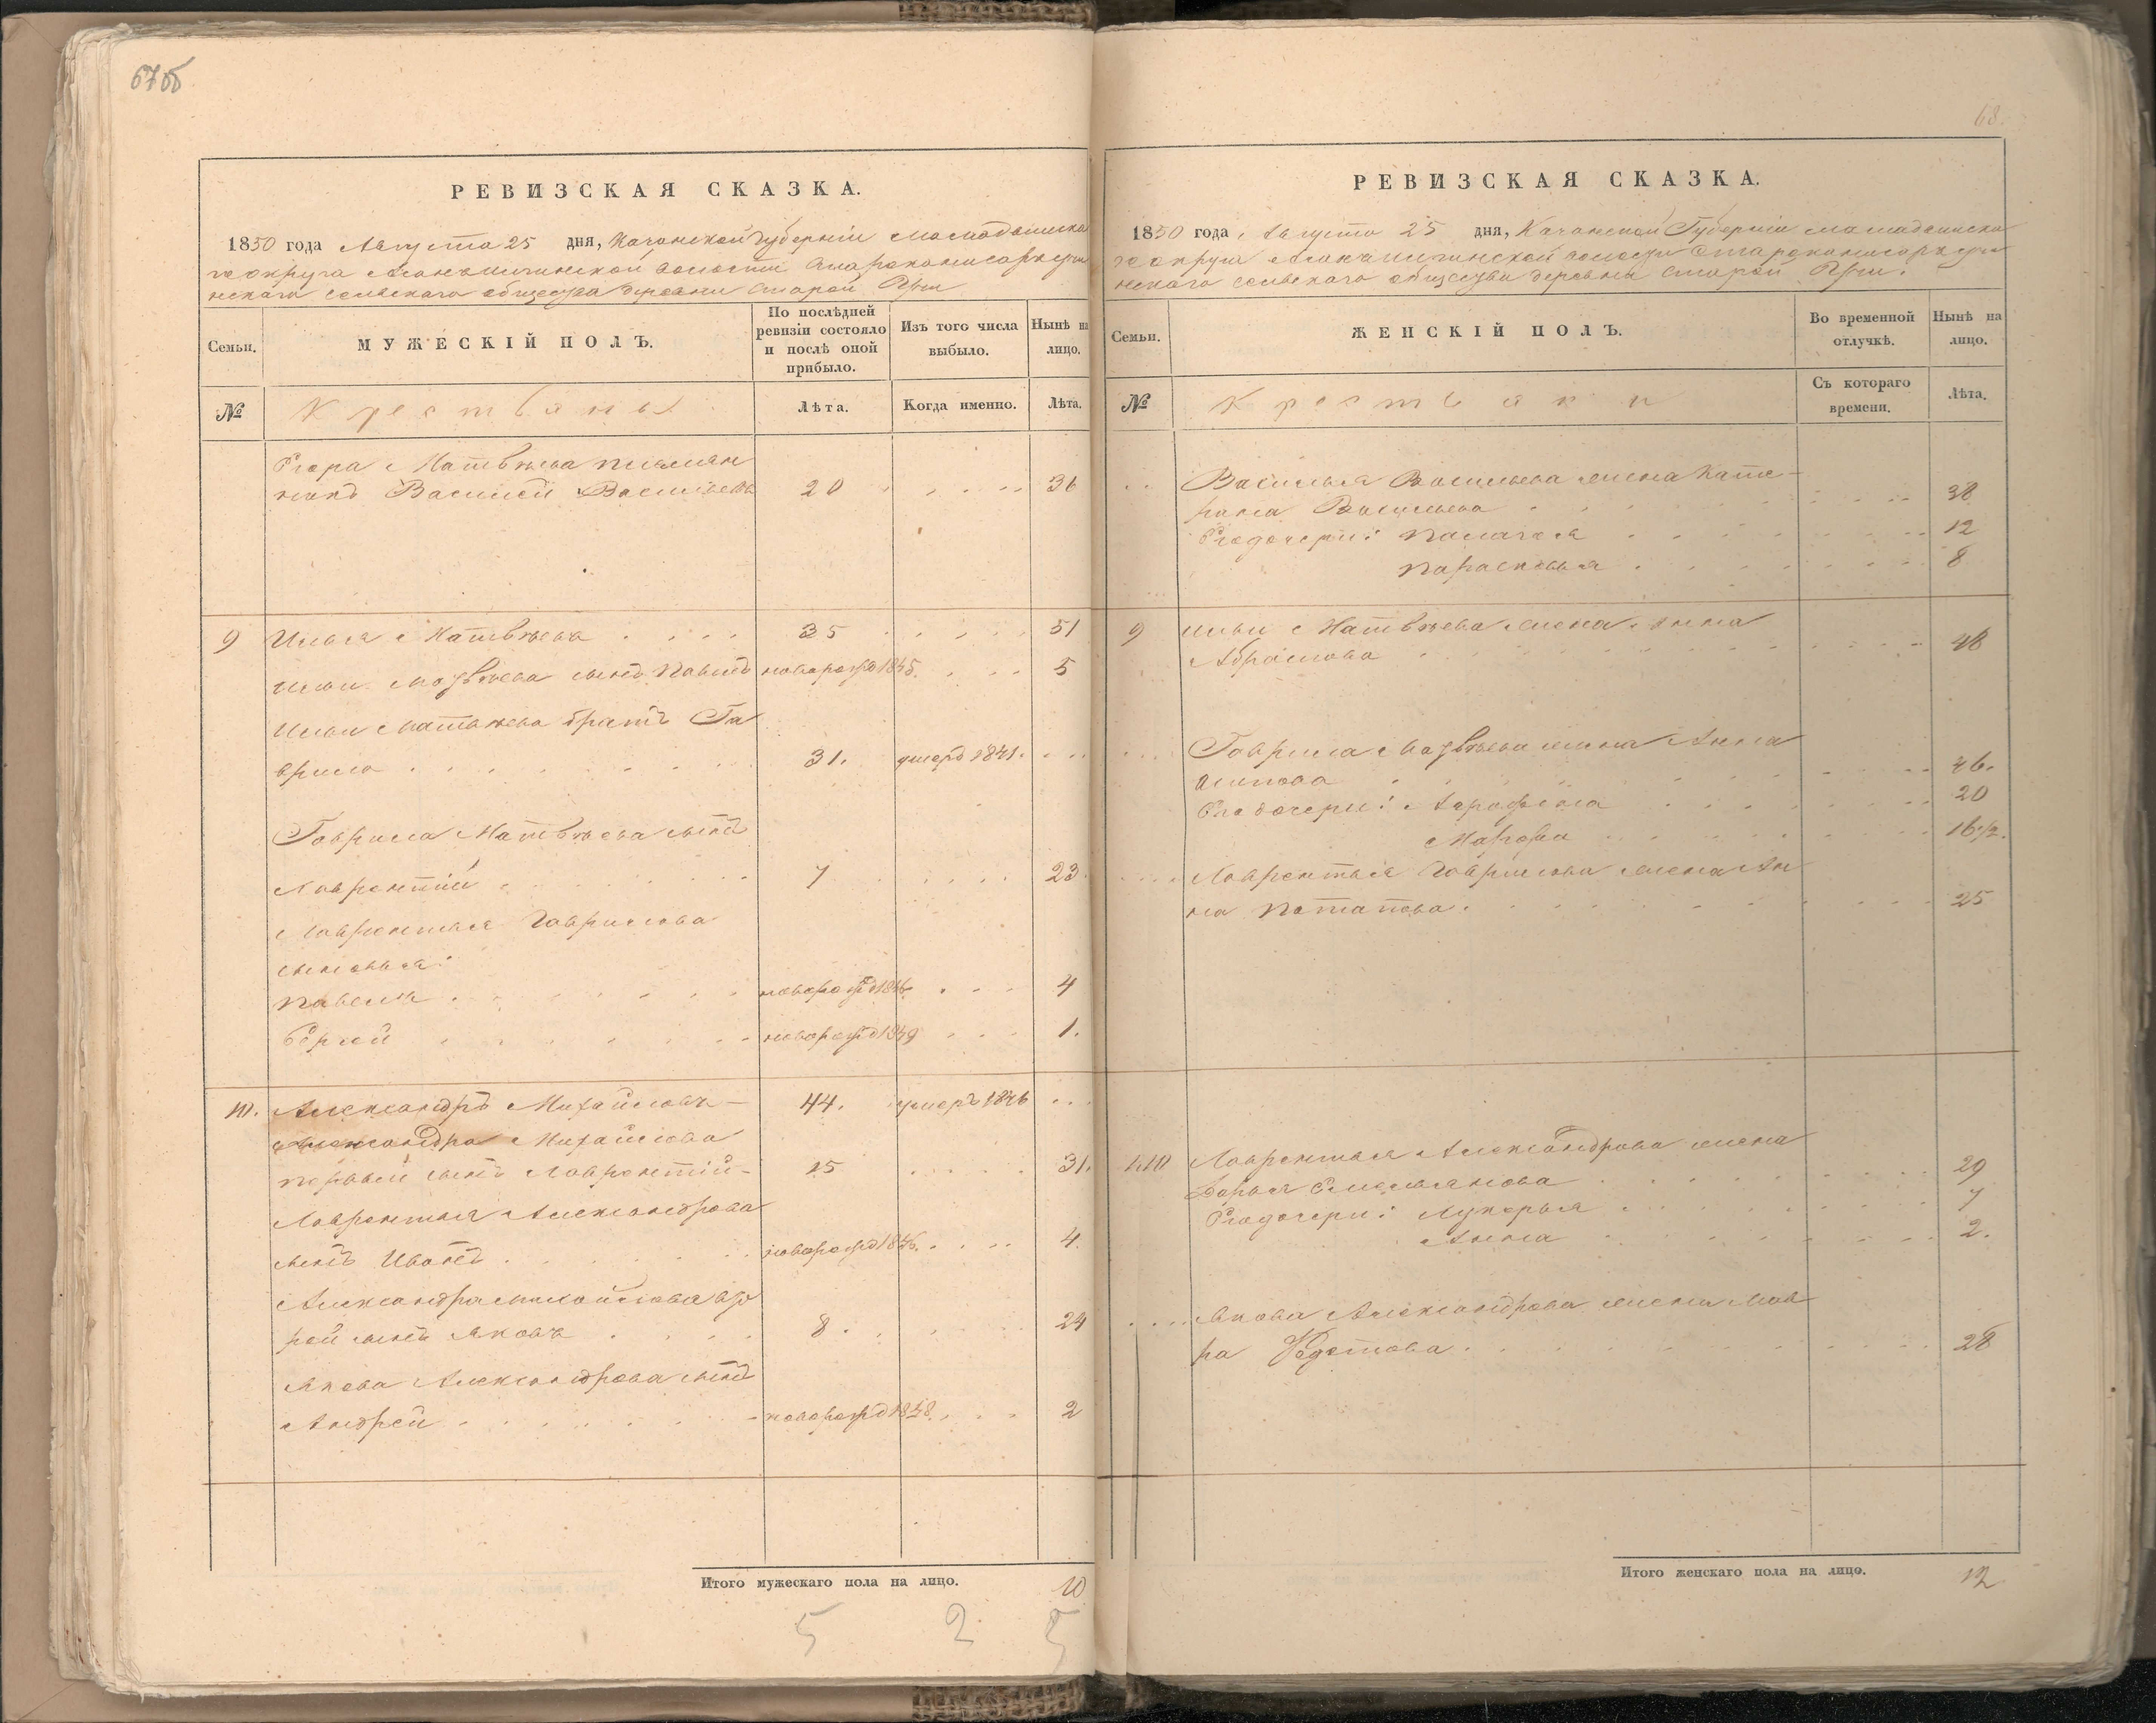 67об
РЕВИЗСКАЯ СКАЗКА.
1850 года Августа 25 дня, Казанской Губерніи Мамадышска
го округа волости
нскаго сельскаго общества деревни Старой
Семьи.
МУЖЕСКІЙ ПОЛЪ.
По послѣдней ревизіи состояло и послѣ оной прибыло.
Изъ того числа выбыло.
Нынѣ на лицо.
№
Крестьяны
Лѣта.
Когда именно.
Лѣта.
Егора Матвѣева племян
никъ Василей Васильевъ 20 36
9 Илья Матвѣевъ 35 51
Ильи Матвѣева сынъ Павелъ новорожд 1845. 5
Ильи Матвѣева братъ Га
врило 31. умеръ 1841.
Гаврила Матвѣева сынъ
Лаврентій 7 23
Лаврентья Гаврилова
сыновья:
Павелъ новорожд 1846 4
Сергей новорожд 1849 1.
10. Александръ Михайловъ 44. умеръ 1846
Александра Михайлова
первый сынъ Лаврентій 15 31.
Лаврентья Александрова
сынъ Иванъ новорожд 1846. 4.
Александра Михайлова вто
рой сынъ Яковъ 8. 24
Якова Александрова сынъ
Андрей новорожд 1848. 2
Итого мужескаго пола на лицо. 10
5 2 5
68.
РЕВИЗСКАЯ СКАЗКА.
1850 года, Августа 25 дня, Казанской Губерніи Мамадышска
го округа волости
нскаго сельскаго общества деревни Старой
Семьи.
ЖЕНСКІЙ ПОЛЪ.
Во временной отлучкѣ.
Нынѣ на лицо.
№
Крестьянки
Съ котораго времени.
Лѣта.
Василья Васильева жена Кате-
рина Васильева 38
Его дочери: Палагея 12
Парасковья 8
9 Ильи Матвѣева жена Анна
Абрамова 48
Гаврила Матвѣева жена Анна
Осипова 46.
Его дочери: 20
Марфа 16 1/2.
Лаврентья Гаврилова жена Ан
на Потапова. 25
10 Лаврентья Александрова жена
Дарья Емельянова 29
Его дочери: Лукерья 7
Анна 2.
Якова Александрова жена Мав
ра Федотова. 28
Итого женскаго пола на лицо. 12